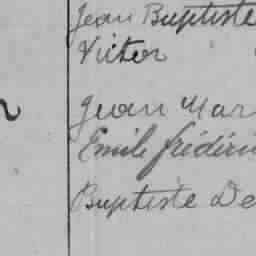 Jean Baptiste
Victor
Jean Mar
Emile frédéri
Baptiste De